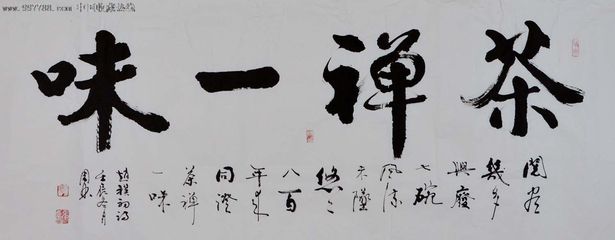 www.997788.com 中国收藏热线
茶禅一味
閲尽
幾多
興廢
七碗
风流
未墜
悠々
八百
年来
同證
茶禅
一味
趙樸初詩
壬辰冬月